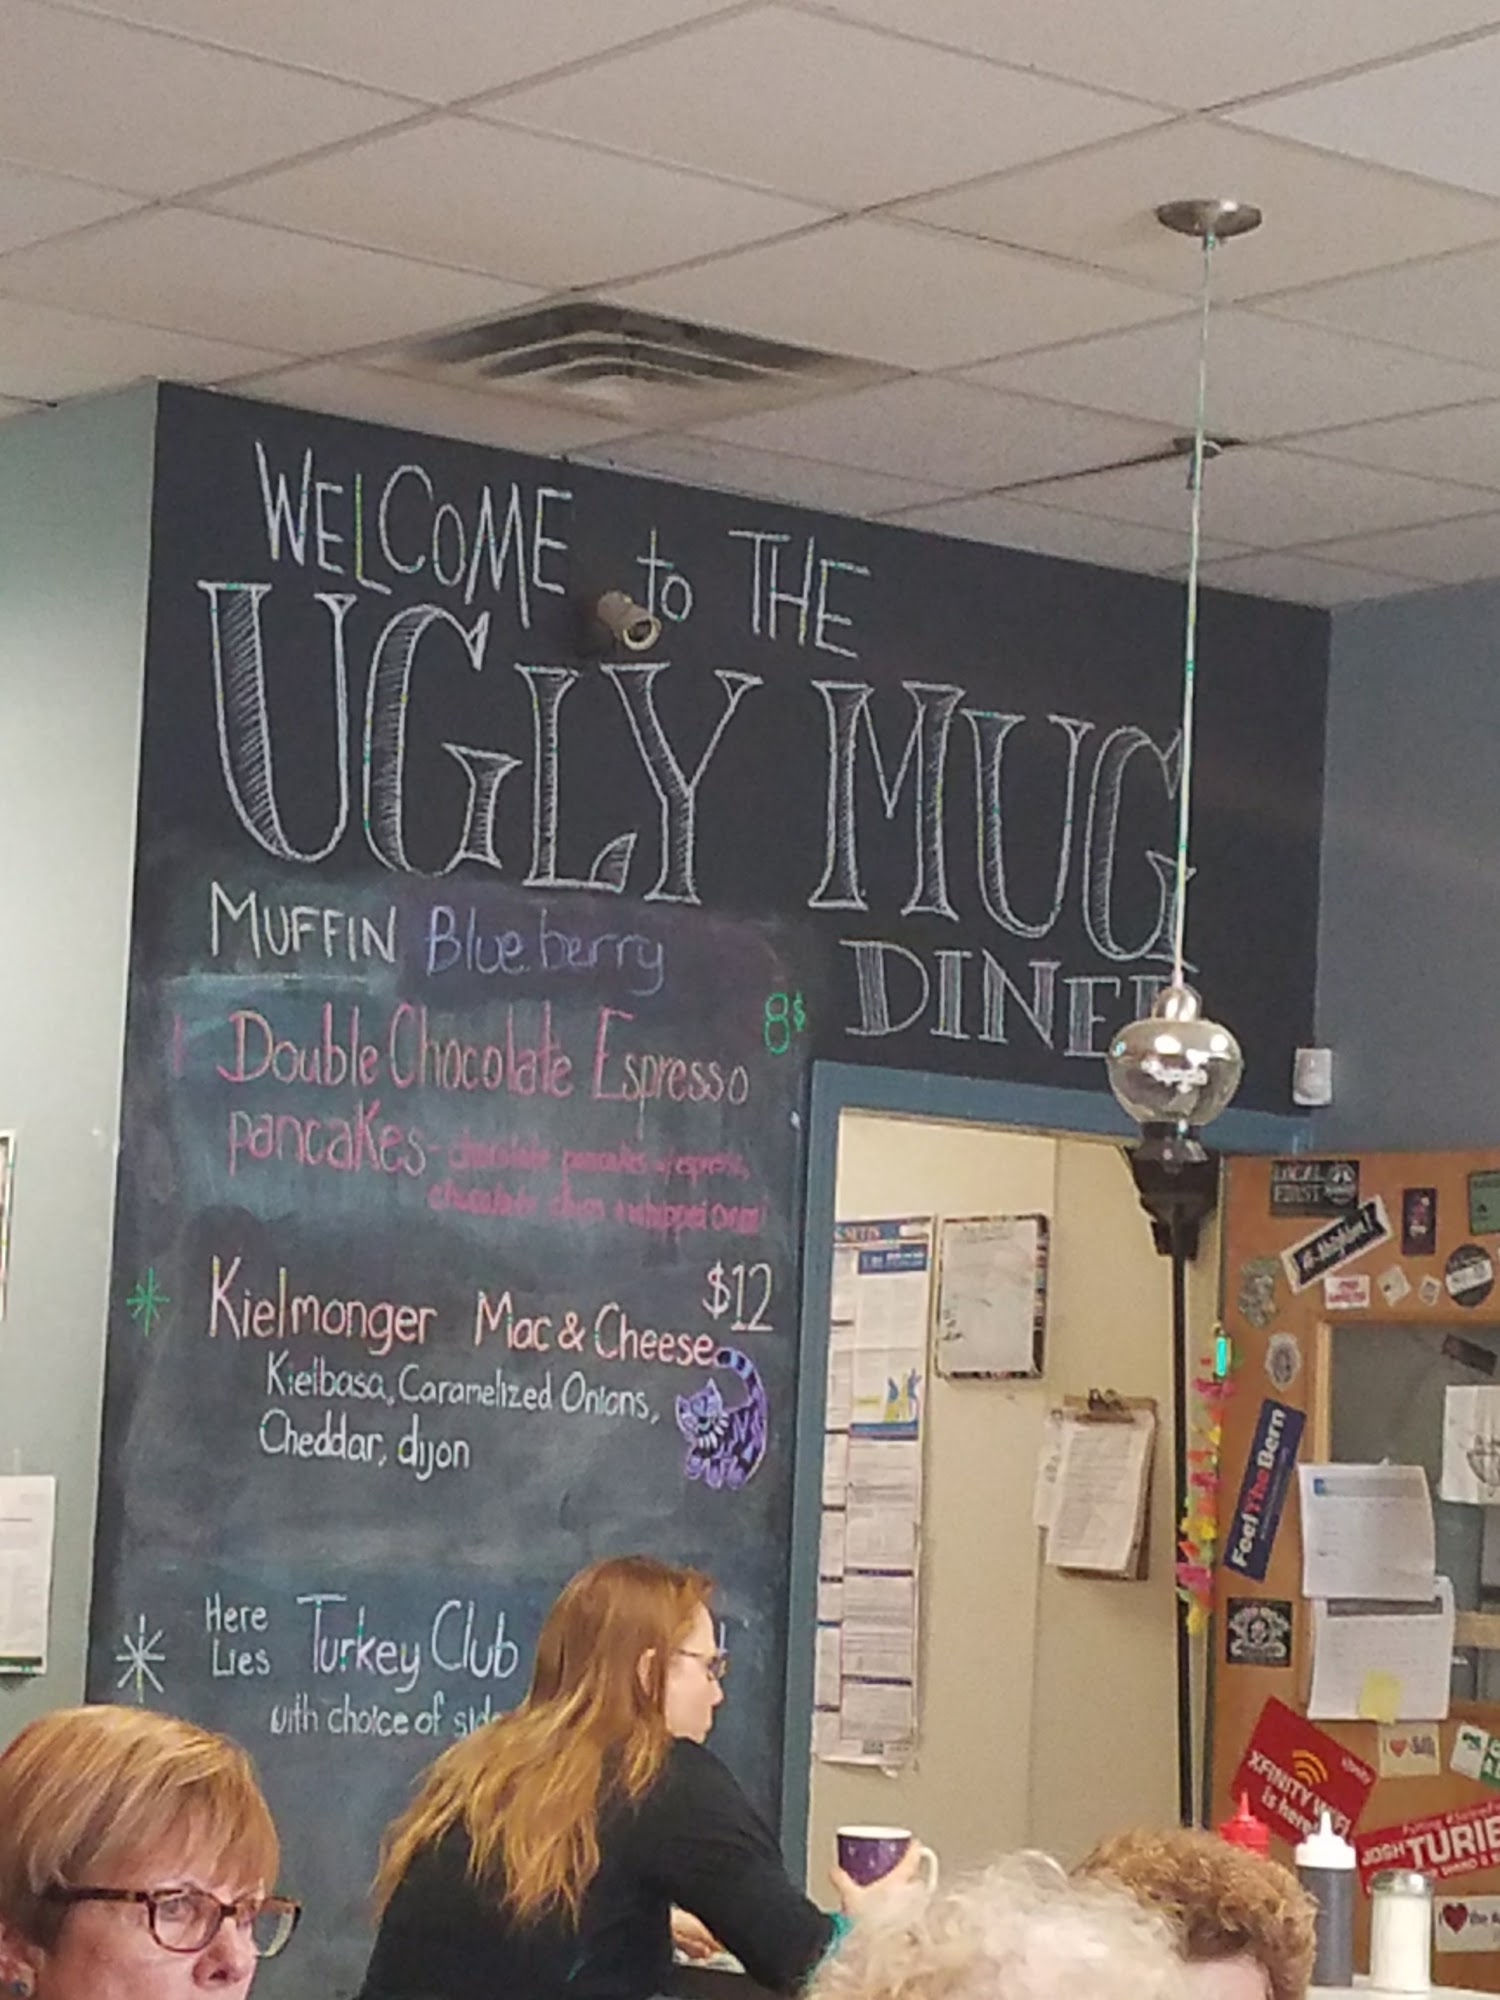 WELCOME to THE
UGLY MUG
DINE
MUFFIN Blueberry
Double Chocolate Espresso 8$
pancakes - chocolate pancakes w/espresso,
chocolate chips & whipped cream!
Kielmonger Mac & Cheese $12
Kielbasa, Caramelized Onions,
Cheddar, dijon
Here
Lies Turkey Club
with choice of side
LOCAL
FIRST
FeelTheBern
xfinity
XFINITY WiFi
is here!
JOSH TURIE
I